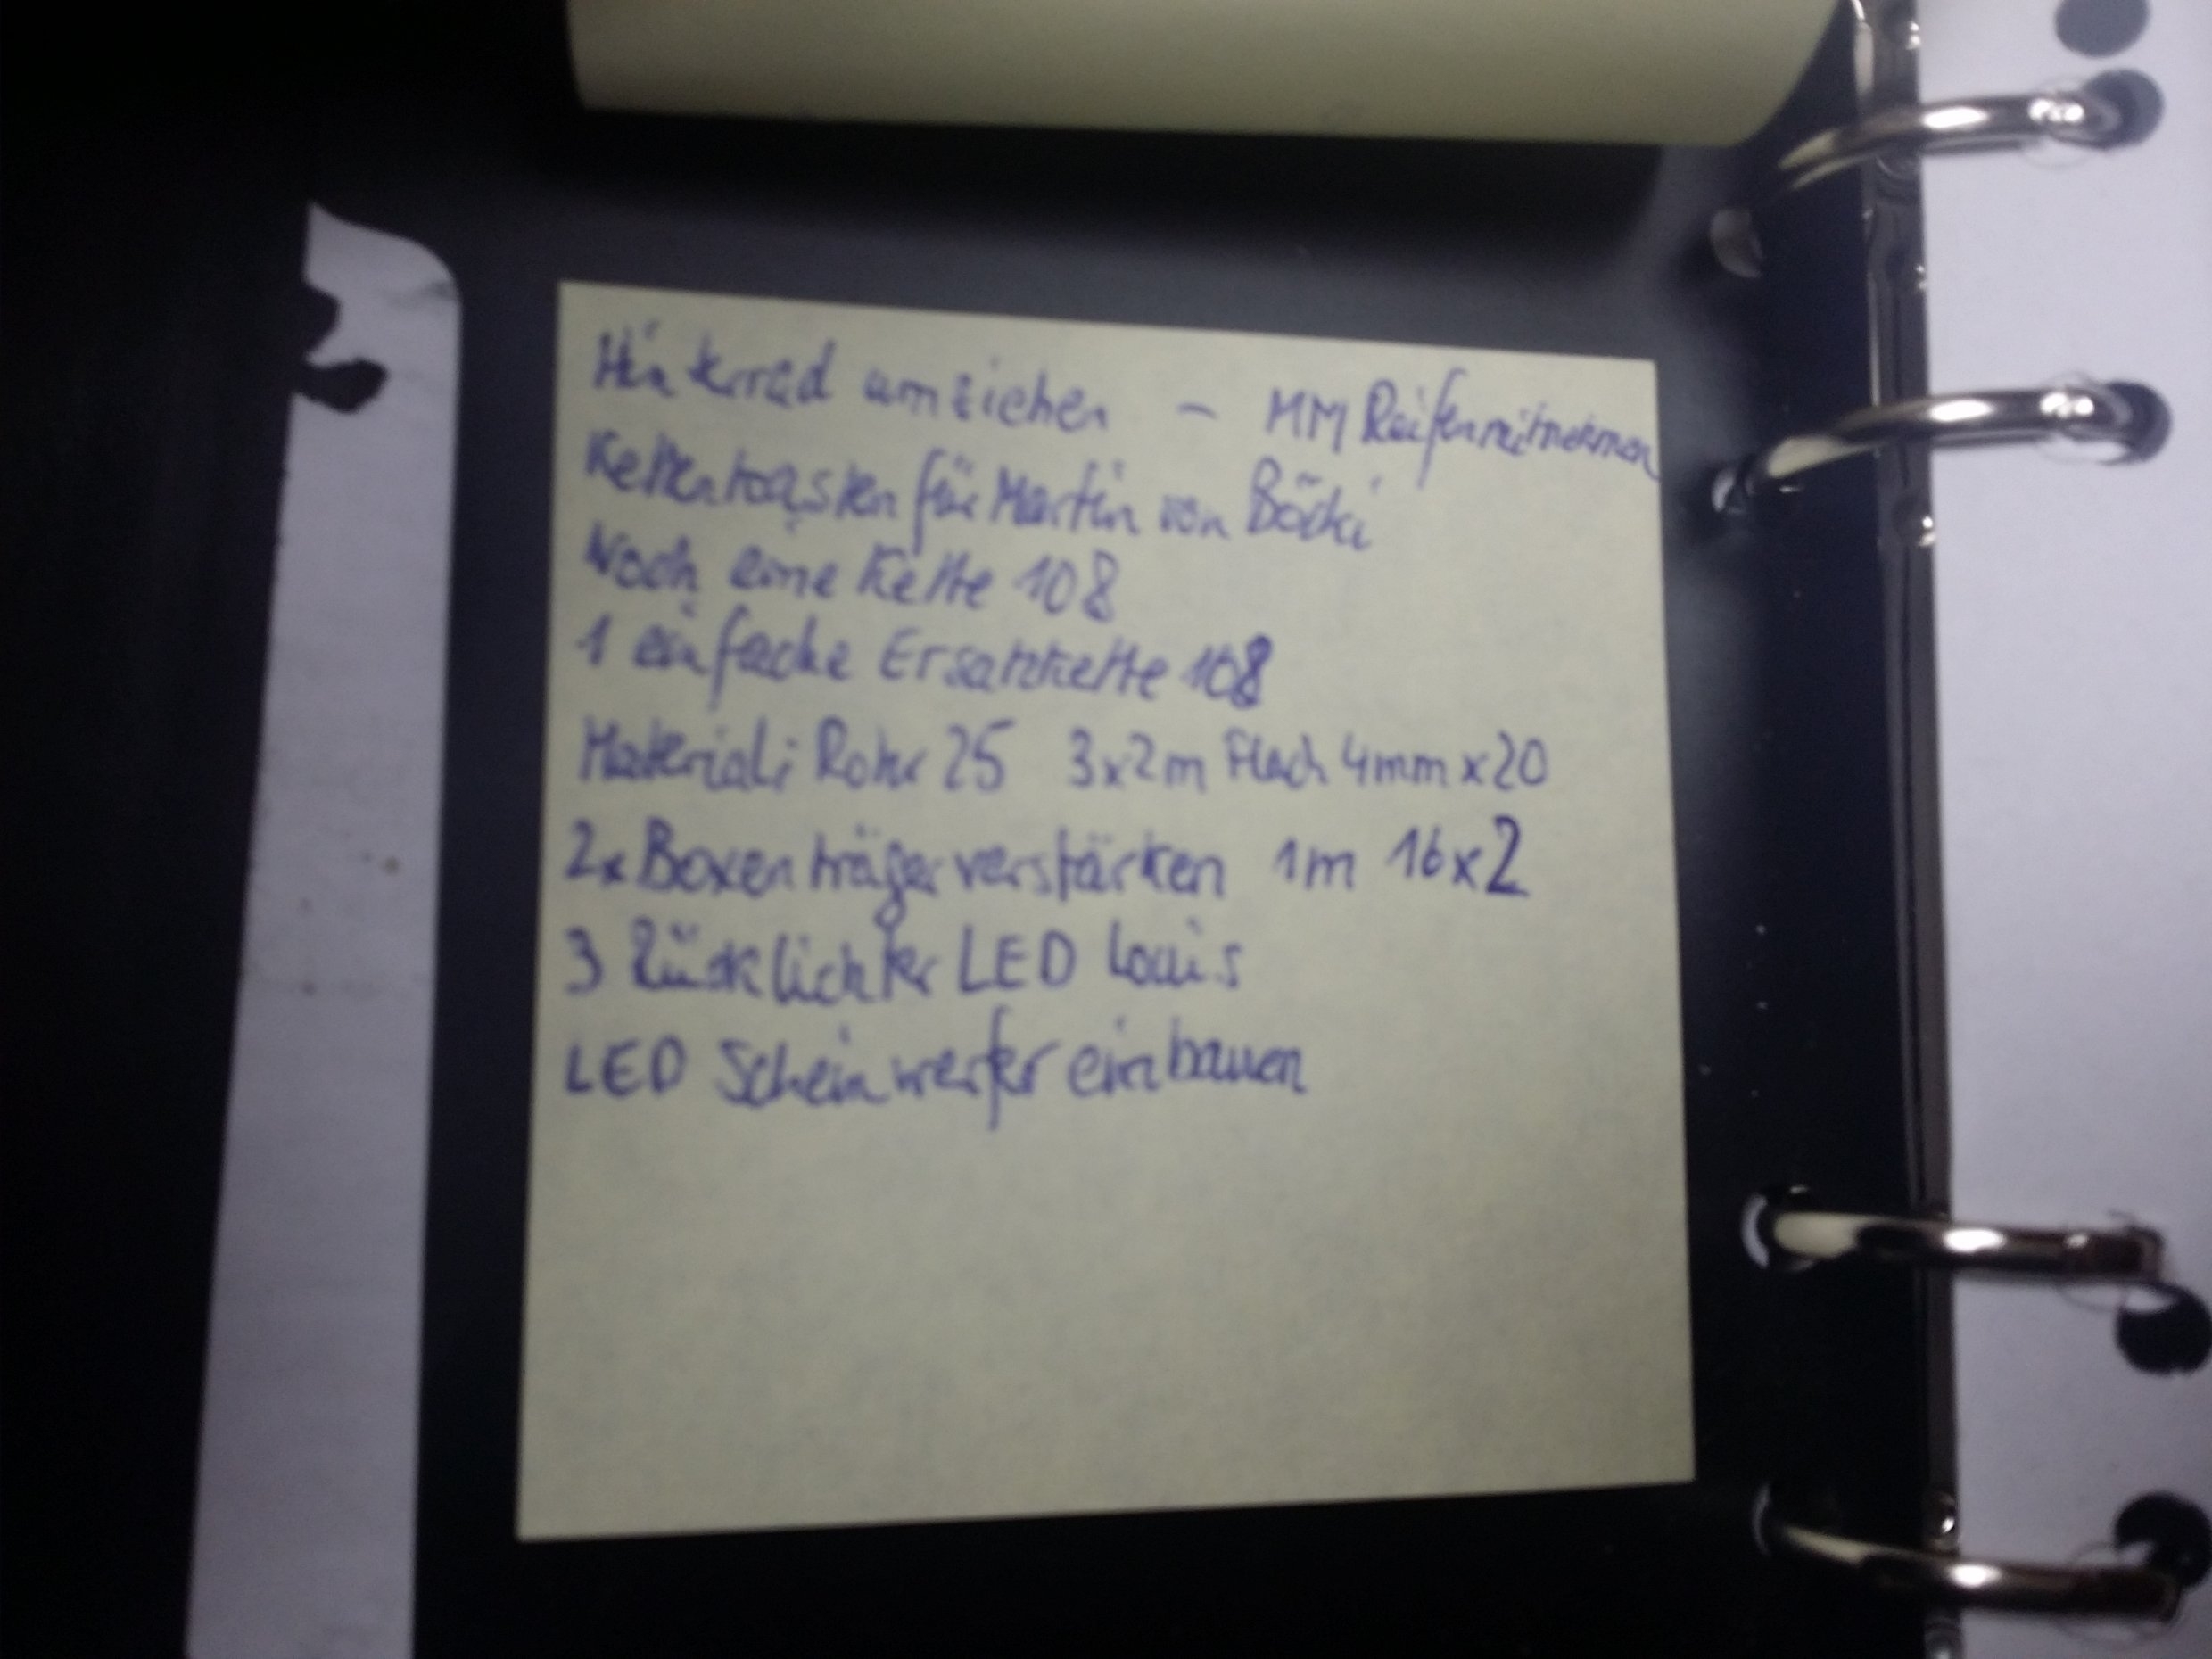 Hinterrad umziehen - MM Reifen mitnehmen
Kettenkasten für Martin von Böcki
Noch eine Kette 108
1 einfache Ersatzkette 108
Material: Rohr 25 3x2m Flach 4mm x 20
2x Boxenträger verstärken 1m 16x2
3 Rücklichter LED Louis
LED Scheinwerfer einbauen